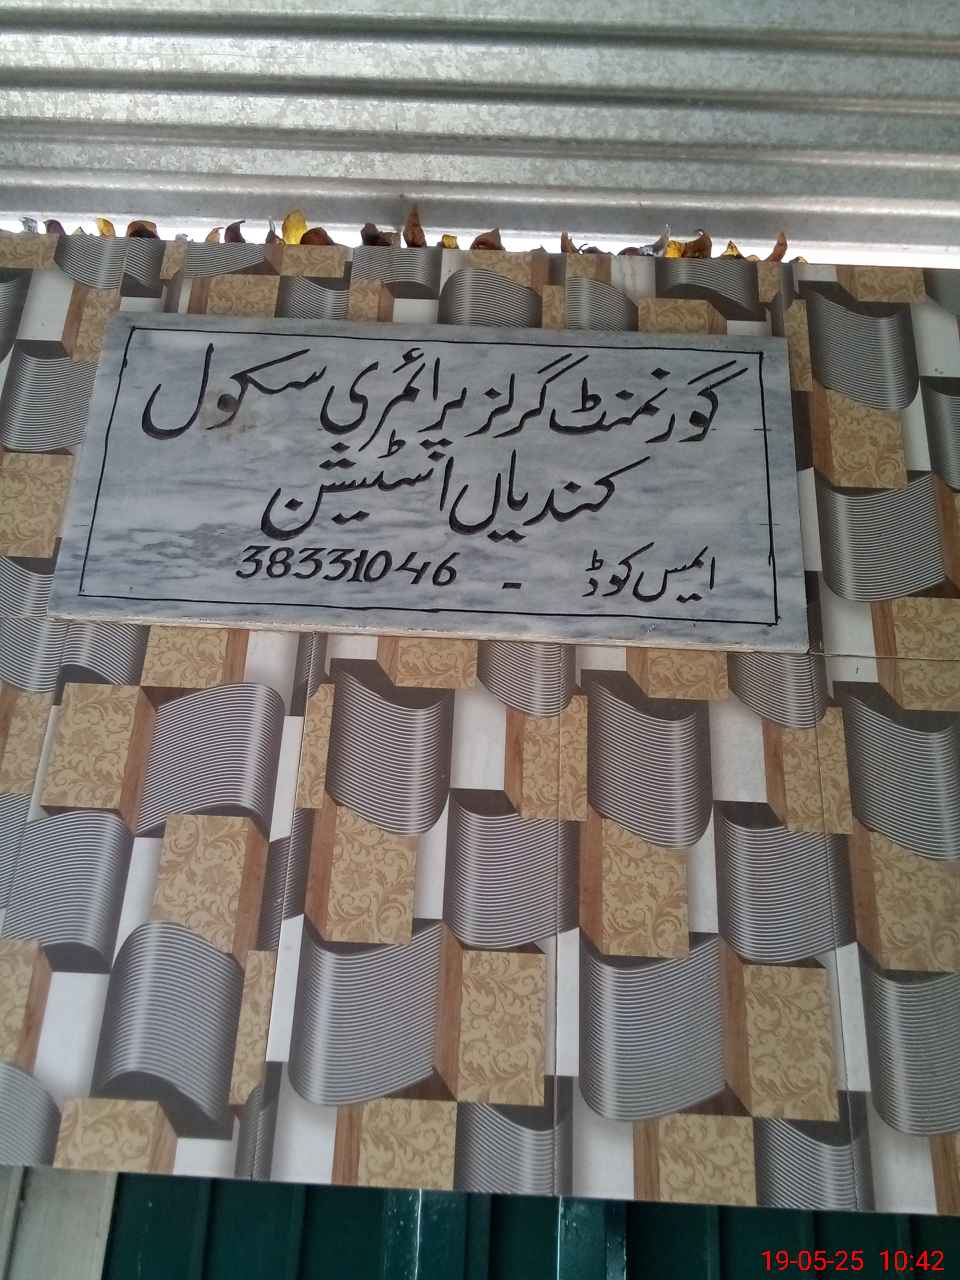 گورنمنٹ گرلز پرائمری سکول
کندیاں اسٹیشن
ایمس کوڈ - 38331046
19-05-25 10:42